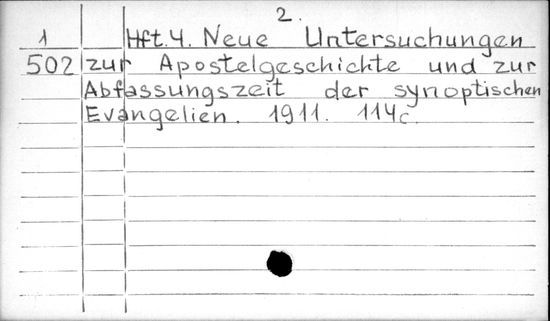 2.
1 Hft. 4. Neue Untersuchungen
502 zur Apostelgeschichte und zur
Abfassungszeit der synoptischen
Evangelien. 1911. 114c.